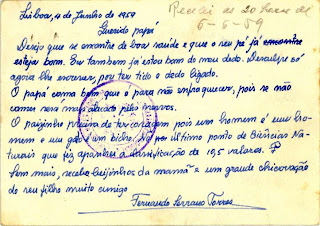 Lisboa, 4 de Junho de 1959
Recebi às 20 horas de
6-6-59
Querido papá
Desejo que se encontre de boa saúde e que o seu pé já encontre
esteja bom. Eu também já estou bom do meu dedo. Desculpe só
agora lhe escrever, por ter tido o dedo ligado.
O papá coma bem que é para não enfraquecer, pois se não
comer será mais atacado pelos negros.
O paizinho precisa de ter coragem pois um homem é um ho-
mem e um gato é um bicho. No por último ponto de Ciências Na-
turais que fiz apanhei a classificação de 19,5 valores. P
bem mais, receba beijinhos da mamã e um grande chicoração
do seu filho muito amigo
Fernando Serrano Torres